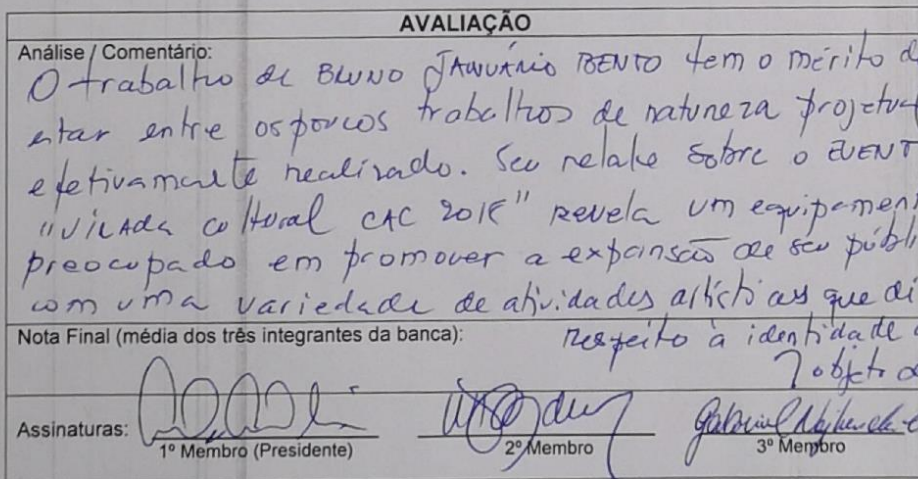 AVALIAÇÃO
Análise / Comentário:
O trabalho de BRUNO JANUÁRIO BENTO tem o mérito d
estar entre os poucos trabalhos de natureza projetua
efetivamente realizado. Seu relato sobre o EVENT
"VIRADA cultural CAC 2018" revela um equipament
preocupado em promover a expansão de seu públi
com uma variedade de atividades artísticas que di
Nota Final (média dos três integrantes da banca):
respeito à identidade
objeto d
Assinaturas:
1º Membro (Presidente)
2º Membro
Gabriel
3º Membro